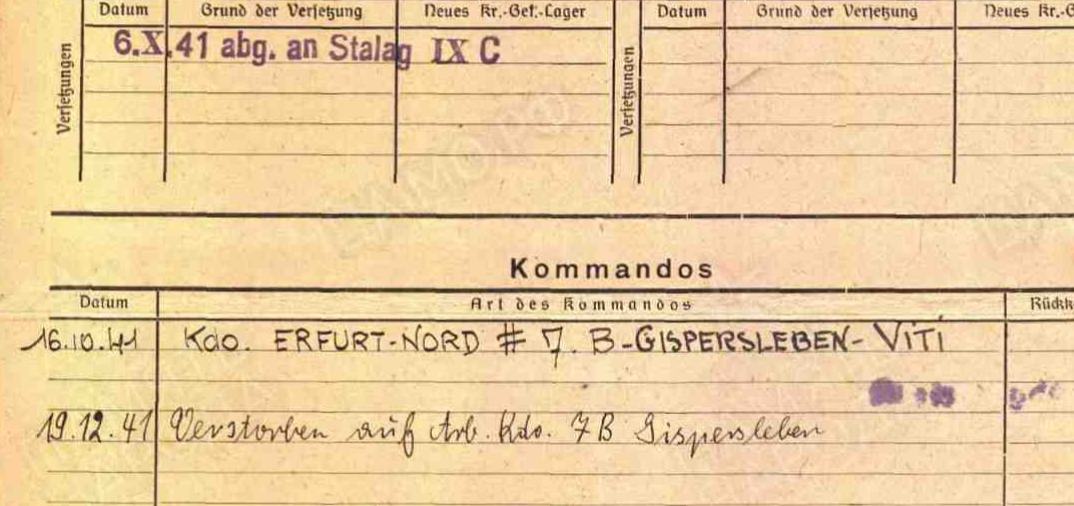 Datum Grund der Versetzung Neues Kr.-Gef.-Lager Datum Grund der Versetzung Neues Kr.-G
Versetzungen
6.X.41 abg. an Stalag IX C
Versetzungen
Kommandos
Datum Art des Kommandos Rückk
16.10.41 Kdo. ERFURT-NORD # 7. B-GISPERSLEBEN-VITI
19.12.41 Verstorben auf Arb. Kdo. 7B Gispersleben